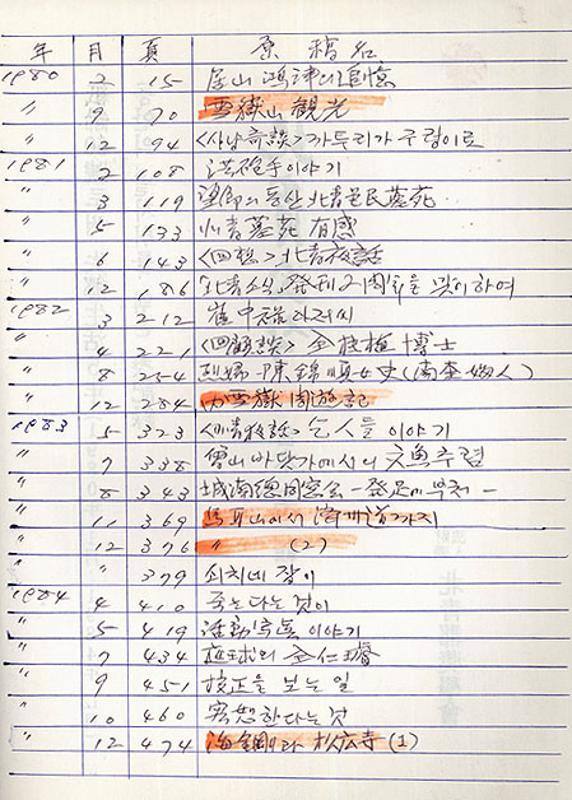 年 月 頁 原稿名
1980 2 15 山 鴻 의 追憶
〃 9 70 雪嶽山 観光
〃 12 94 <사냥奇談> 까투리가 주렁이로
1981 2 108 洪砲手 이야기
〃 3 119 望鄕의 동산 北靑邑民墓苑
〃 5 133 北青墓苑 有感
〃 6 143 <回想> 北青夜話
〃 12 186 北青소식 発刊 2周年을 맞이하여
1982 3 212 崔中 아저씨
〃 4 221 <回顧談> 金 植 博士
〃 8 254 烈婦 陳錦順女史
〃 12 284 内雪嶽周遊記
1983 5 323 <北青夜話> 乞人들 이야기
〃 7 338 바닷가에서의 文魚추렴
〃 8 343 城南總同窓会 - 発足에 부쳐 -
〃 11 369 馬耳山에서 까지
〃 12 376 〃 (2)
〃 379 쇠치네 잡이
1984 4 410 죽는다는 것이
〃 5 419 活動寫真 이야기
〃 7 434 庭球의 金仁
〃 9 451 校正을 보는 일
〃 10 460 容恕한다는 것
〃 12 474 海金剛과 松広寺 (1)